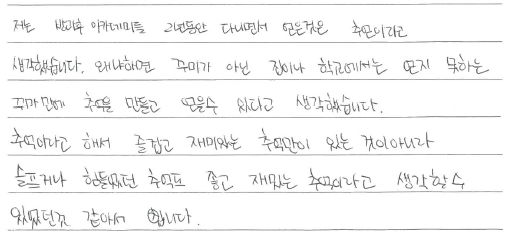 저는 방과후 아카데미를 2년동안 다니면서 얻은것은 추억이라고
생각했습니다. 왜냐하면 꾸미가 아닌 집이나 학교에서는 얻지 못하는
꾸미만에 추억을 만들고 얻을수 있다고 생각했습니다.
추억이라고 해서 즐겁고 재미있는 추억만이 있는 것이아니라
슬프거나 힘들었던 추억도 좋고 재밌는 추억이라고 생각할수
있었던것 같아서 입니다.